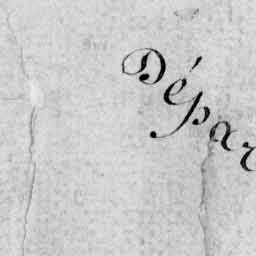 Dépar